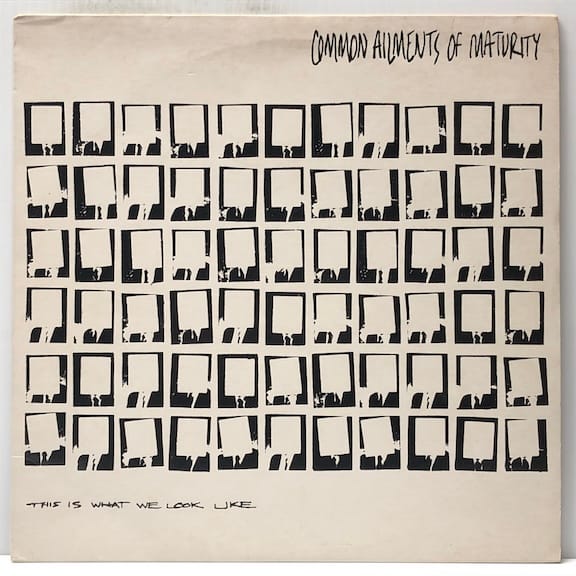 COMMON AILMENTS OF MATURITY
THIS IS WHAT WE LOOK LIKE